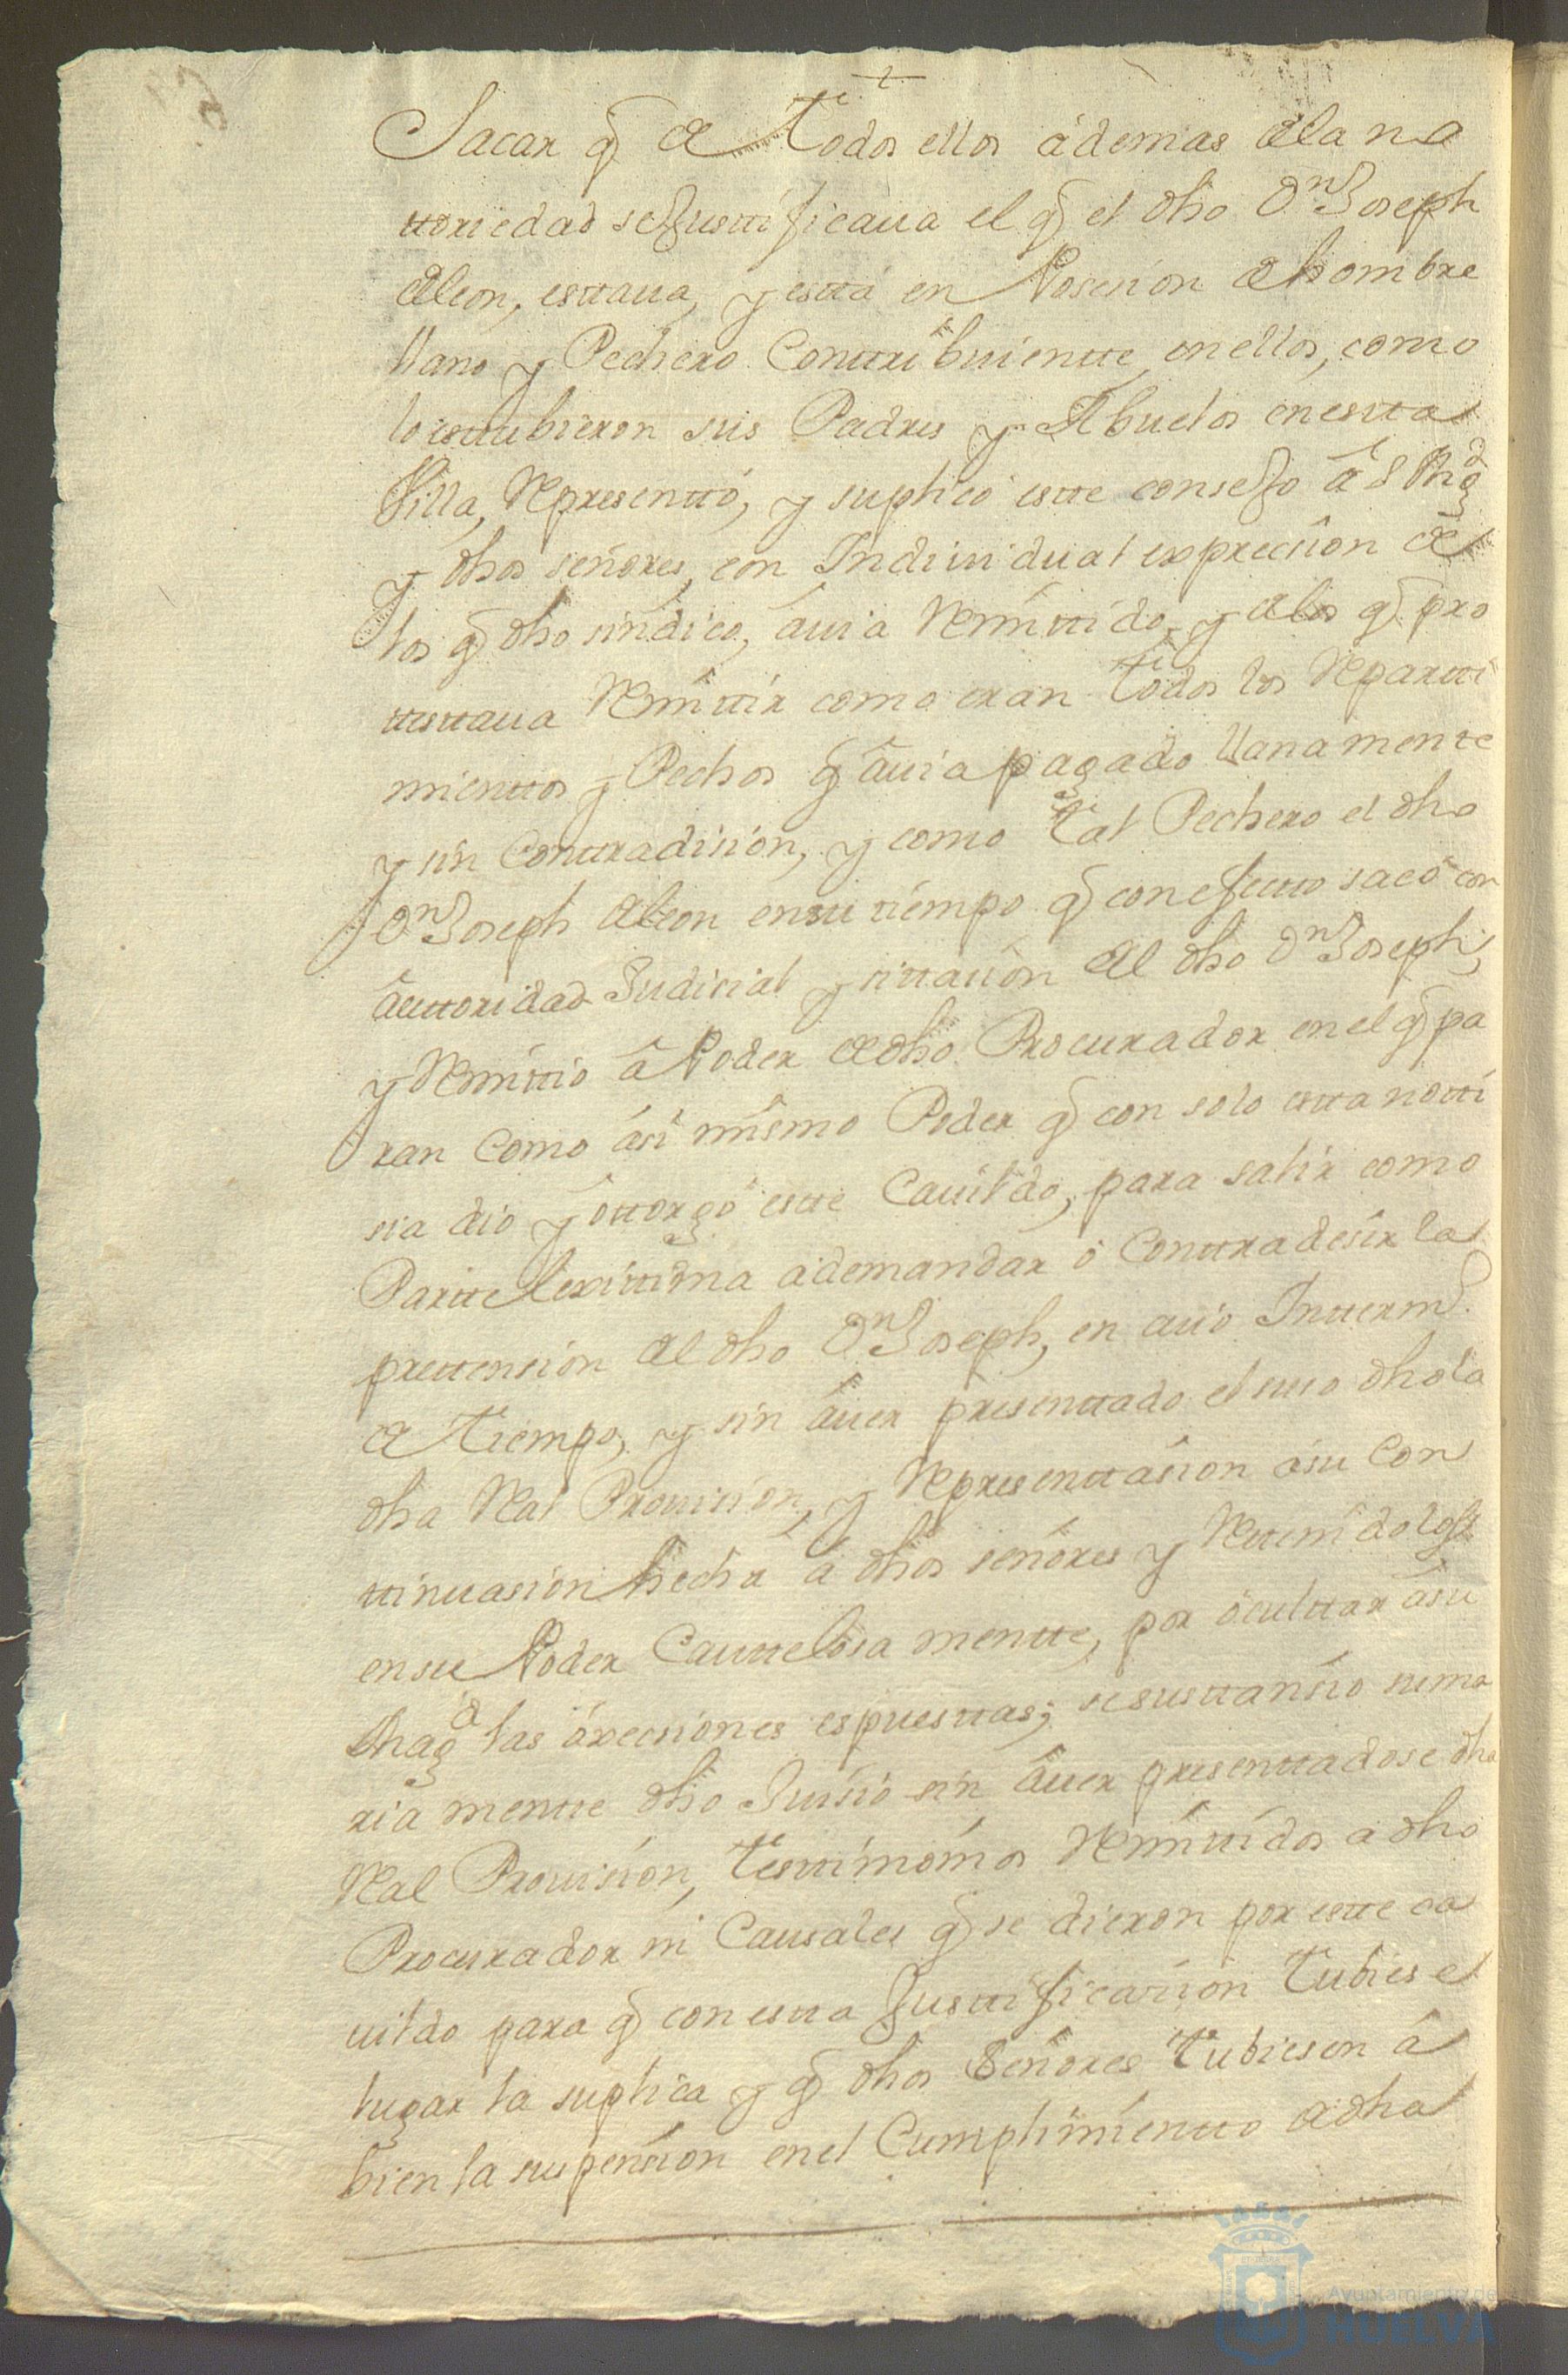 Sacar q̃ de Todos ellos âdemas dela no
ttoriedad seJusttificaua el q̃ el dho Dn Joseph
deleon, esttaua, y está en Posesion de hombre
llano y Pechero Conttribuientte, en ellos, como
lo esttubieron sus Padres y Abuelos en estta
Villa, Representtó, y suplicó estte consejo â S Mag.d
y dhos señores, con Indiuidual exprecîon de
los q̃ dho sindico, âuia Remittido, y delos q̃ pro
ttesttaua Remittir como eran Todos los Repartti
mienttos y Pechos q̃ âuia pagado llanamente
y sin Conttradision, y como Tal Pechero el dho
Dn Joseph deleon en su tiempo q̃ con efectto sacó con
âuttoridad Judicial y sittasion del dho Dn Joseph,
y Remittio â Poder de dho Procurador en el q̃ pa
ran Como âsi mîsmo Poder q̃ con solo estta notti
sia dio y ôttorgó estte Cauildo, para salir como
Partte lexittima a demandar ó Conttradesîr la
prettension del dho Dn Joseph, en cuio Intterm.º
de Tiempo, y sin âuer presenttado el suso dho la
dha Real Prouision, y Representtâsion âsu Con
ttinuasion hecha â dhos señores y Rettenidolos
en su Poder Cauttelosa mentte, por ôculttar âsu
Mag.d las ôxecsiones espuesttas; se susttansîo suma
ria mentte dho Juisio sin âuer presenttadose dha
Real Prouision, Testtimonios Remittidos a dho
Procurador ni Causales q̃ se dieron por estte ca
uildo para q̃ con estta Justtificasion Tubiese
lugar la suplica y q̃ dhos Señores Tubiesen â
bien la suspension en el Cumplimientto de dha
Ayuntamiento de
HUELVA